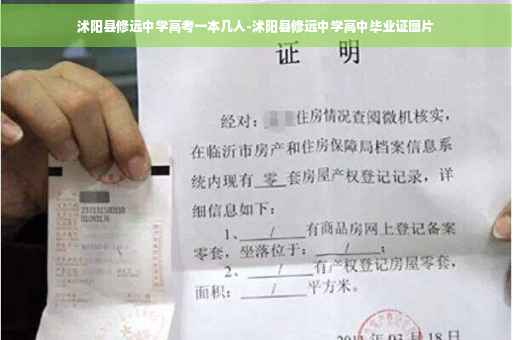 沭阳县修远中学高考一本几人-沭阳县修远中学高中毕业证图片
证 明
经对： 住房情况查阅微机核实，
在临沂市房产和住房保障局档案信息系
统内现有 零 套房屋产权登记记录，详
细信息如下：
1、 / 有商品房网上登记备案
零套，坐落位于： / ；
2、 / 有产权登记房屋零套，
面积： / 平方米。
18日